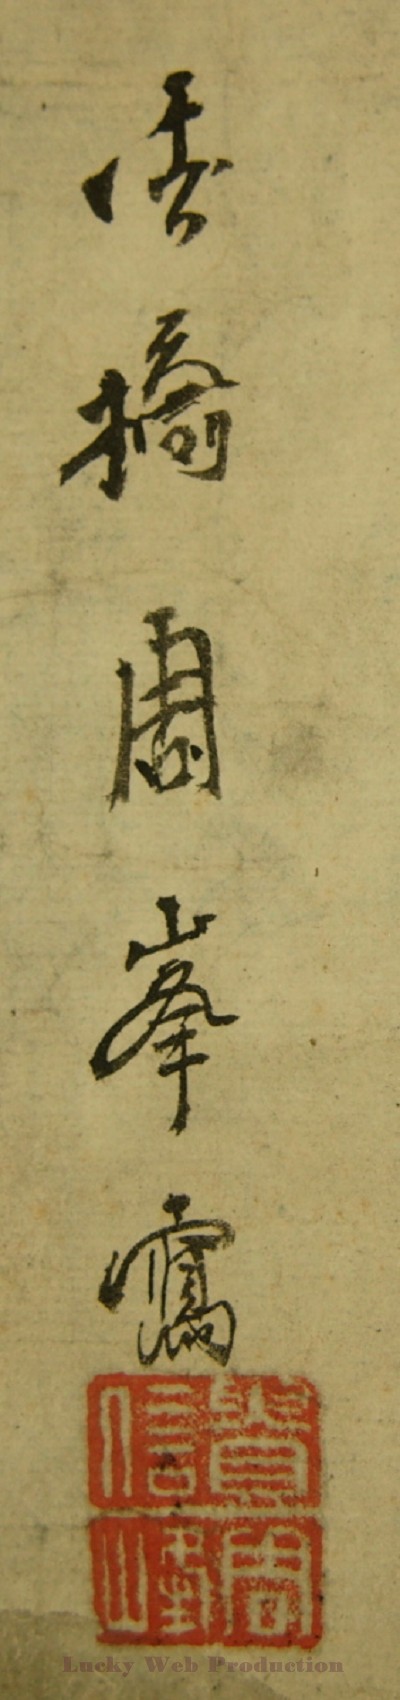 法橋周峯寫
信
周峰
Lucky Web Production